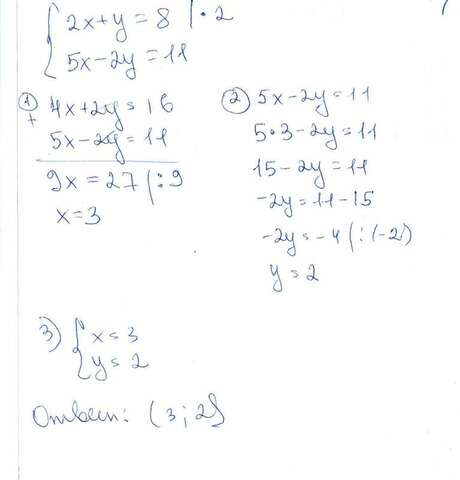 2x+y=8 |·2
5x-2y=11
① 4x+2y=16
+
5x-2y=11
9x=27 |:9
x=3
② 5x-2y=11
5·3-2y=11
15-2y=11
-2y=11-15
-2y=-4 |:(-2)
y=2
3) x=3
y=2
Ответ: (3;2)